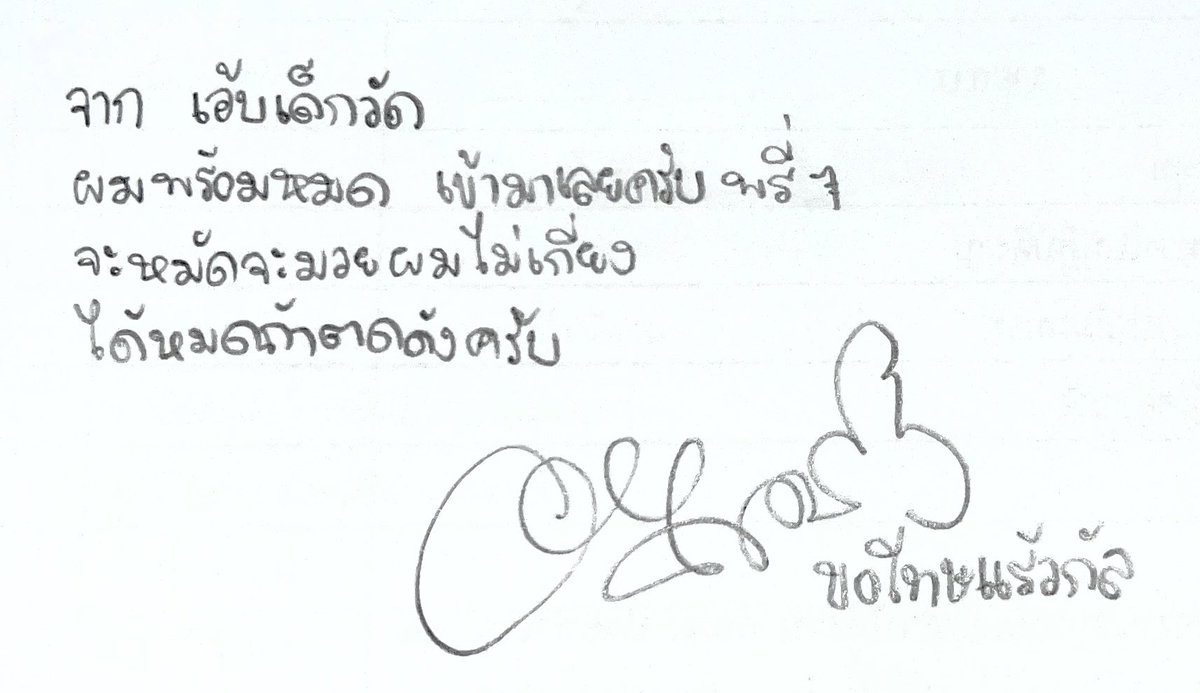 จาก เอ้บเด็กวัด
ผมพร้อมหมด เข้ามาเลยครับ พรี่ ๆ
จะหมัดจะมวยผมไม่เกี่ยง
ได้หมดถ้าตดดังครับ
ขอโทษแร้วกัล